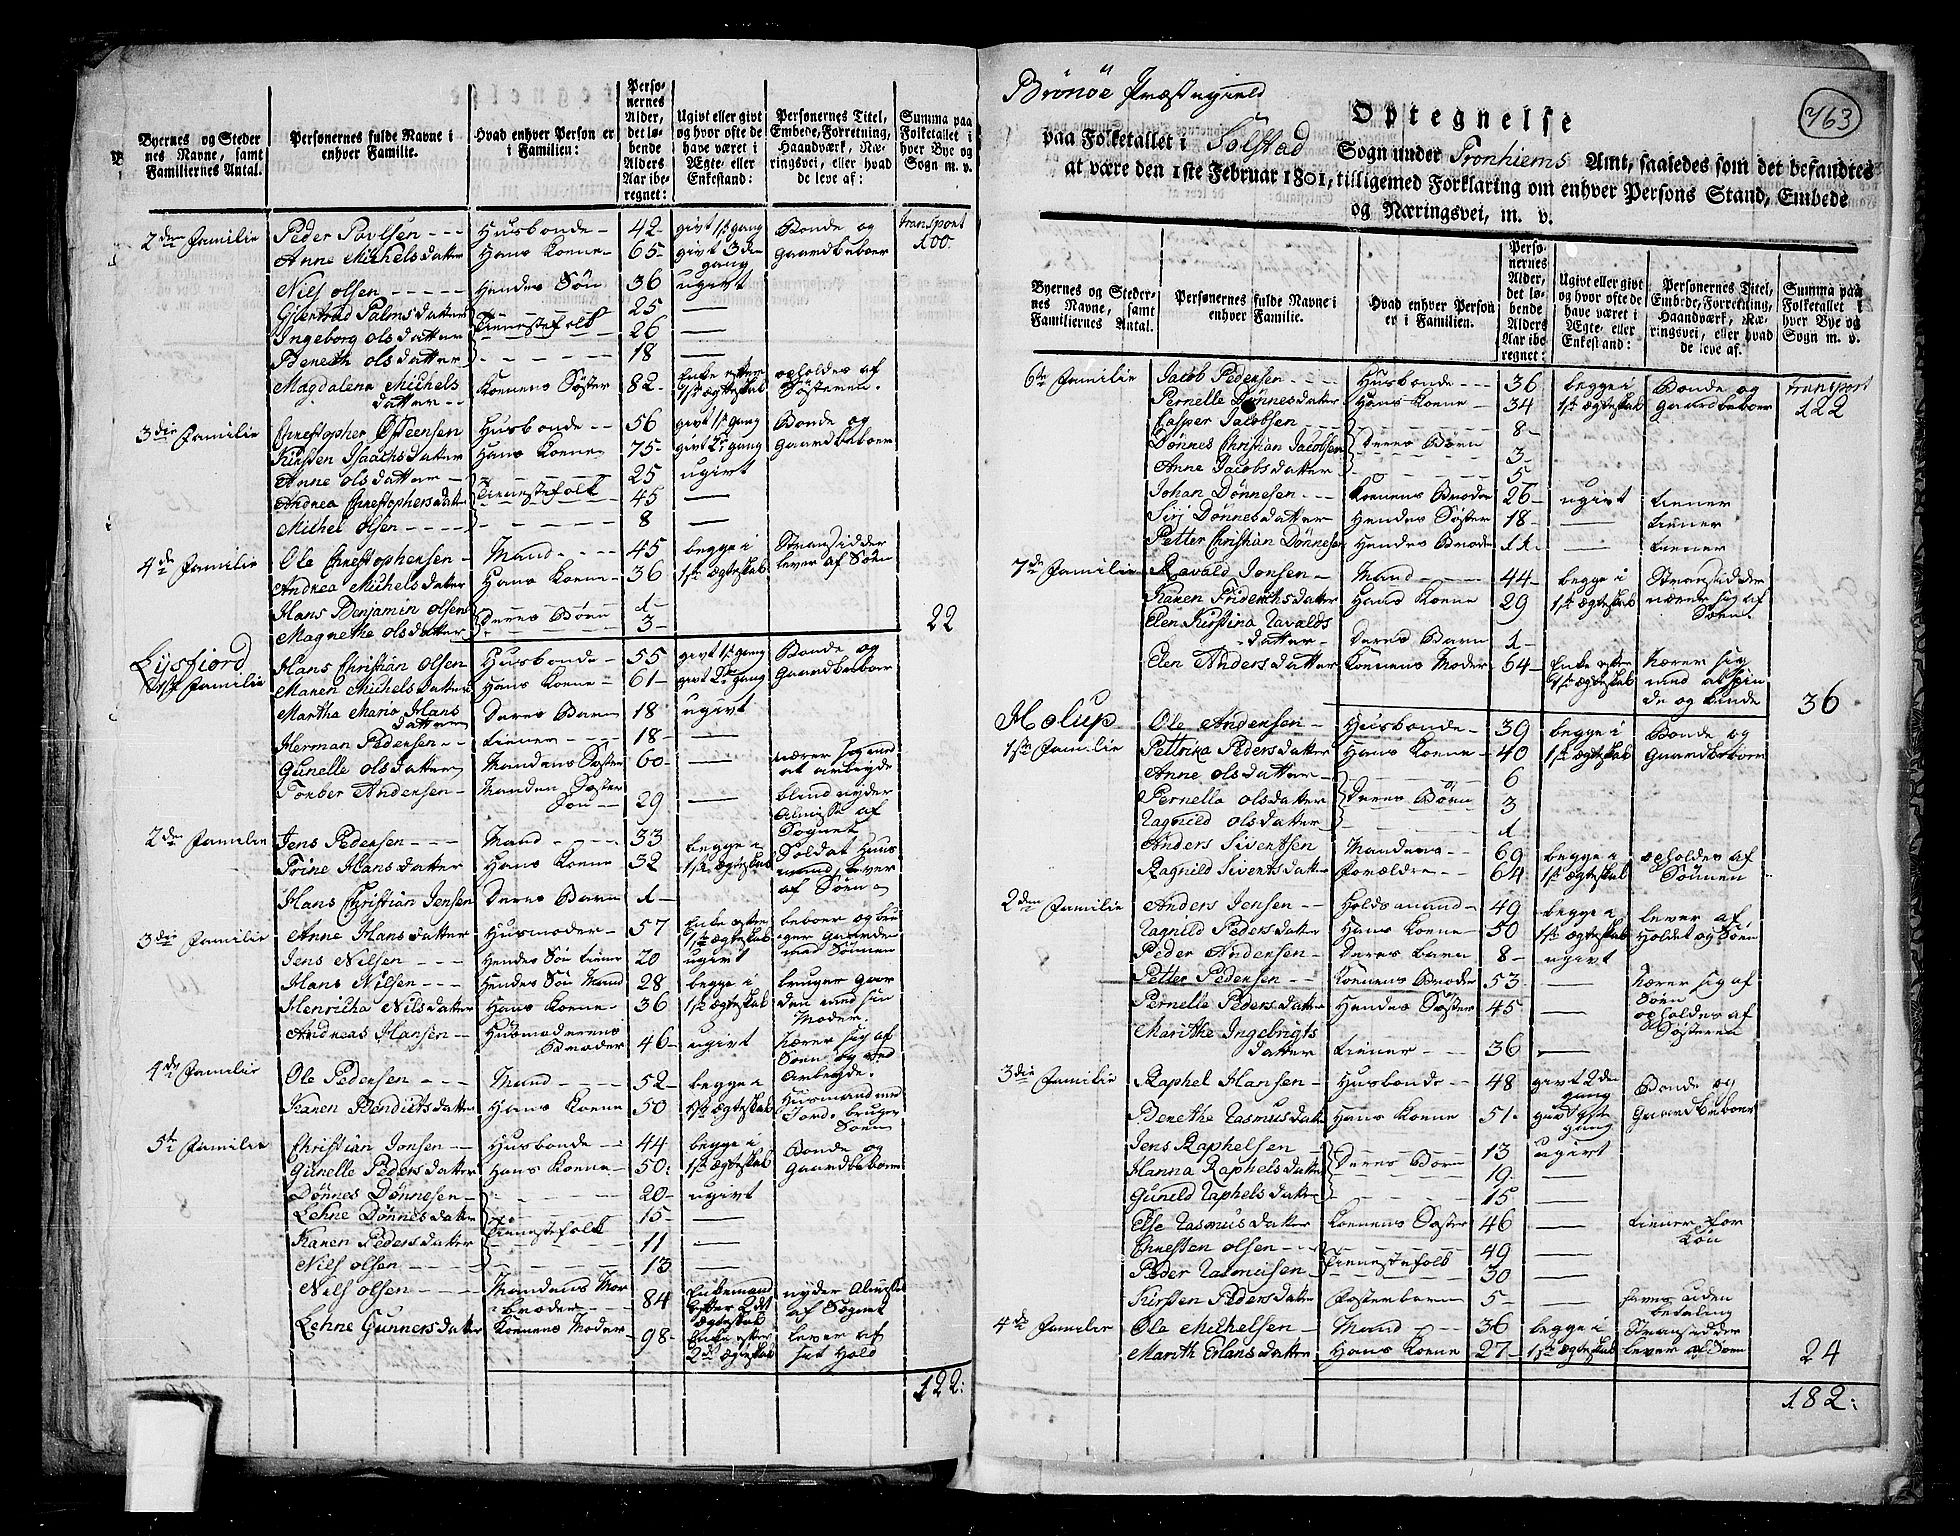 Byernes og Steder nes Navne, samt Familiernes Antal.
Personernes fulde Navne i enhver Familie.
Hvad enhver Person er i Familien:
Personernes Alder, det løbende Alders Aar iberegnet:
Ugivt eller givt og hvor ofte de have været i Ægte- eller Enkestand:
Personernes Titel, Embede, Forretning, Haandværk, Næringsvei, eller hvad de leve af:
Summa paa Folketallet i hver Bye og Sogn m. v.
transport 100
2den Familie Peder Povlsen Husbonde 42 givt 1ste gang Bonde og
Anne Michelsdatter Hans Koene 65 givt 3die gang Gaardbeboer
Nils Olsen Hendes Søn 36 ugivt
Giertrud Palonsdatter 25 —
Ingeborg Olsdatter Tienestefolk 26 —
Beneth Olsdatter 18 —
Magdalena Michels datter Koenens Søster 82 Enke efter 1ste Ægteskab opholdes af Søsteren.
3die Familie Christopher Osteensen Husbonde 56 givt 1ste gang Bonde og
Kirsten Isaachsdatter Hans Koene 75 givt 2de gang Gaardbeboer
Anne Olsdatter 25 ugivt
Andrea Christophersdat Tienestefolk 45 —
Michel Olsen 8 —
4de Familie Ole Christophersen Mand 45 begge i Strandsidder
Andrea Michelsdatter Hans Koene 36 1ste Ægteskab lever af Søen
Hans Benjamin Olsen 1
Magrethe Olsdatter Deres Børn 3
22
Lysfiord
1ste Familie Hans Christian Olsen Husbonde 55 givt 1ste gang Bonde og
Maren Michelsdatter Hans Koene 61 givt 2de gang Gaardbeboer
Martha Maria Hans datter Deres Barn 18 ugivt
Herman Pedersen Tiener 18 —
Gunelle Olsdatter Mandens Søster 60 — nærer sig med at arbeyde
Tonber Andersen Manden Søster Søn 29 — blind nyder Almisse af Sognet
2den Familie Jens Pedersen Mand 33 begge i Soldat Huus
Trine Hansdatter Hans Koene 32 1ste Ægteskab mand, lever af Søen
Hans Christian Jensen Deres Barn 1
3die Familie Anne Hansdatter Husmoder 57 Enke efter 1ste Ægteskab beboer og bru
Jens Nilsen Hendes Søn tiener 20 ugivt ger Gaarden med Sønnen
Hans Nilsen Hendes Søn Mand 28 begge i bruger Gaar
Henricha Nilsdatter Hans Koene 36 1ste Ægteskab den med sin Moder.
Andreas Hansen Husmoderens Broder 46 ugivt nærer sig af Søen og ved Arbeyde.
4de Familie Ole Pedersen Mand 52 begge i Husmand med
Karen Bendictsdatter Hans Koene 50 1ste Ægteskab Jord. bruger Søen
5te Familie Christian Jonsen Husbonde 44 begge i Bonde og
Gunelle Pedersdatter Hans Koene 50 1ste Ægteskab Gaardbeboer
Dönnes Dönnesen 20 ugivt
Lehne Dönnesdatter 15 —
Tienestefolk
Karen Pedersdatter 11 —
Nils Olsen 13 —
Nils Olsen Mandens Mor broder 84 Enkemand efter 2det Ægteskab nyder Almisse af Sognet
Lehne Gunnersdatter Koenens Moder 98 Enke efter 2det Ægteskab lever af sit Hold
122:
763
Brönöe Præstegield
Optegnelse
paa Folketallet i Solstad Sogn under Tronhiems Amt, saaledes som det befandtes
at være den 1ste Februar 1801, tilligemed Forklaring om enhver Persons Stand, Embede
og Næringsvei, m. v.
Byernes og Stedernes Navne, samt Familiernes Antal.
Personernes fulde Navne i enhver Familie.
Hvad enhver Person er i Familien.
Personernes Alder, det løbende Alders Aar iberegnet:
Ugivt eller givt og hvor ofte de have været i Ægte- eller Enkestand:
Personernes Titel, Embede, Forretning, Haandværk, Næringsvei, eller hvad de leve af.
Summa paa Folketallet i hver Bye og Sogn m. v.
transport 122
6te Familie Jacob Pedersen Husbonde 36 begge i Bonde og
Pernelle Dönnesdatter Hans Koene 34 1ste Ægteskab Gaardbeboer
Casper Jacobsen 8
Dönnes Christian Jacobsen Deres Börn 3
Anne Jacobsdatter 5
Johan Dönnesen Koenens Broder 26 ugivt tiener
Siri Dönnesdatter Hendes Söster 18 — tiener
Petter Christian Dönnesen Hendes Broder 11 — tiener
7de Familie Ravald Jonsen Mand 44 begge i Strandsidder
Karen Friderichsdatter Hans Koene 29 1ste Ægteskab nærer sig af Søen.
Elen Kirstina Ravalds datter Deres Barn 1
Elen Andersdatter Koenens Moder 64 Enke efter 1ste Ægteskab nærer sig med at spinde og binde
36
Holup
1ste Familie Ole Andersen Husbonde 39 begge i Bonde og
Pettrika Pedersdatter Hans Koene 40 1ste Ægteskab Gaardbeboer
Anne Olsdatter 6
Pernella Olsdatter Deres Börn 3
Ragnild Olsdatter 1
Anders Sivertsen Mandens 69 begge i opholdes af
Ragnild Sivertsdatter Forældre 64 1ste Ægteskab Sönnen
2den Familie Anders Jensen Holdsmand 49 begge i lever af
Ragnild Pedersdatter Hans Koene 50 1ste Ægteskab Holdet og Søen
Peder Andersen Deres barn 8 ugivt
Petter Pedersen Koenens Broder 53 — nærer sig af Søen
Pernelle Pedersdatter Hendes Søster 45 — opholdes af Søsteren
Marithe Ingebrigts datter Tiener 36 —
3die Familie Raphel Hansen Husbonde 48 givt 2de gang Bonde og
Benethe Rasmusdatter Hans Koene 51 givt 1ste gang Gaardbeboer
Jens Raphelsen 13 ugivt
Hanna Raphelsdatter Deres Børn 19 —
Gunild Raphelsdatter 15 —
Else Rasmusdatter Koenens Søster 46 — tiener for Løn
Christen Olsen 49 —
Peder Rasmusen Tienestefolk 30 —
Kirsten Pedersdatter Fosterbarn 5 — haves uden betaling
4de Familie Ole Michelsen Mand 36 begge i Strandsidder
Marith Erlansdatter Hans Koene 27 1ste Ægteskab lever af Søen
24
182: